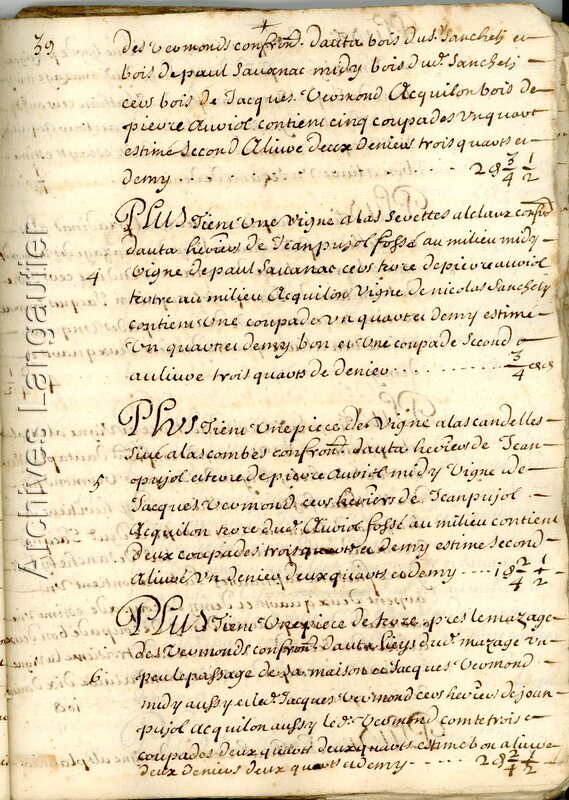 39
des Vermonds confront. dauta bois du s. Sanchely et
bois de paul Sauanac midy bois dud. Sanchely
cers bois de Jacques Vermond Acquilon bois de
pierre Auriol contient cinq coupades Un quart
estimé Second A liure deux deniers trois quarts et
demy . . . . . . 2 d 3/4 1/2
PLUS Tient Une Vigne a las Seuettes al claux confron
dauta heritiers de Jean pujol fossé au milieu midy
4
Vigne de paul Sauanac cers terre de pierre auriol
tertre au milieu Acquilon Vigne de nicolas Sanchely
contient Une coupade Un quart et demy estimé
Un quart et demy bon et Une coupade Second
a liure trois quarts de denier . . . . . . 3/4
PLUS Tient Une piece de Vigne a las candelles
Siue a las combes confront. dauta heritiers de Jean
5
pujol et terre de pierre Auriol midy Vigne de
Jacques Vermond cers heritiers de Jean pujol
Acquilon terre dud. Auriol fossé au milieu contient
Deux coupades trois quarts et demy estimé Second
A liure Un denier deux quarts et demy . . . . 1 d 2/4 1/2
PLUS Tient Une piece de terre pres le mazage
des Vermonds confront. dauta lieys dud. mazage Un
6
peu le passage de la maison et Jacques Vermond
midy aussy et led. Jacques Vermond cers heritiers de Jean
pujol Acquilon aussy led. Vermond comte trois
coupades deux quarts deux quarts estimé bon a liure
deux deniers deux quarts et demy . . . . . 2 d 2/4 1/2
Archives Langautier